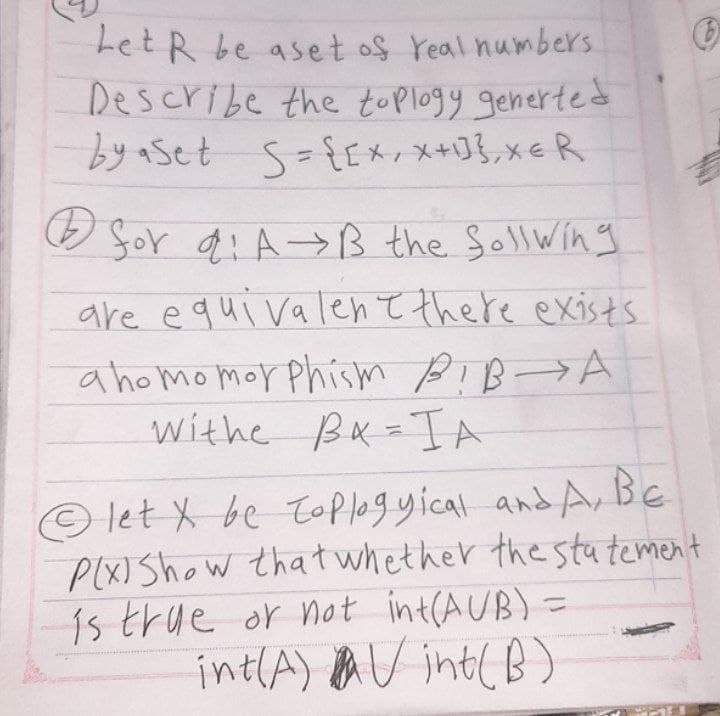 Let R be a set of real numbers
Describe the toplogy generted
by a Set S={[x, x+1]}, x∈R
ⓑ for α: A→B the follwing
are equivalent there exists
a homomorphism β: B→A
withe βα = I A
ⓒ let X be toplogyical and A, B∈
P(X) Show that whether the statement
is true or not int(A∪B) =
int(A) ∪ int(B)